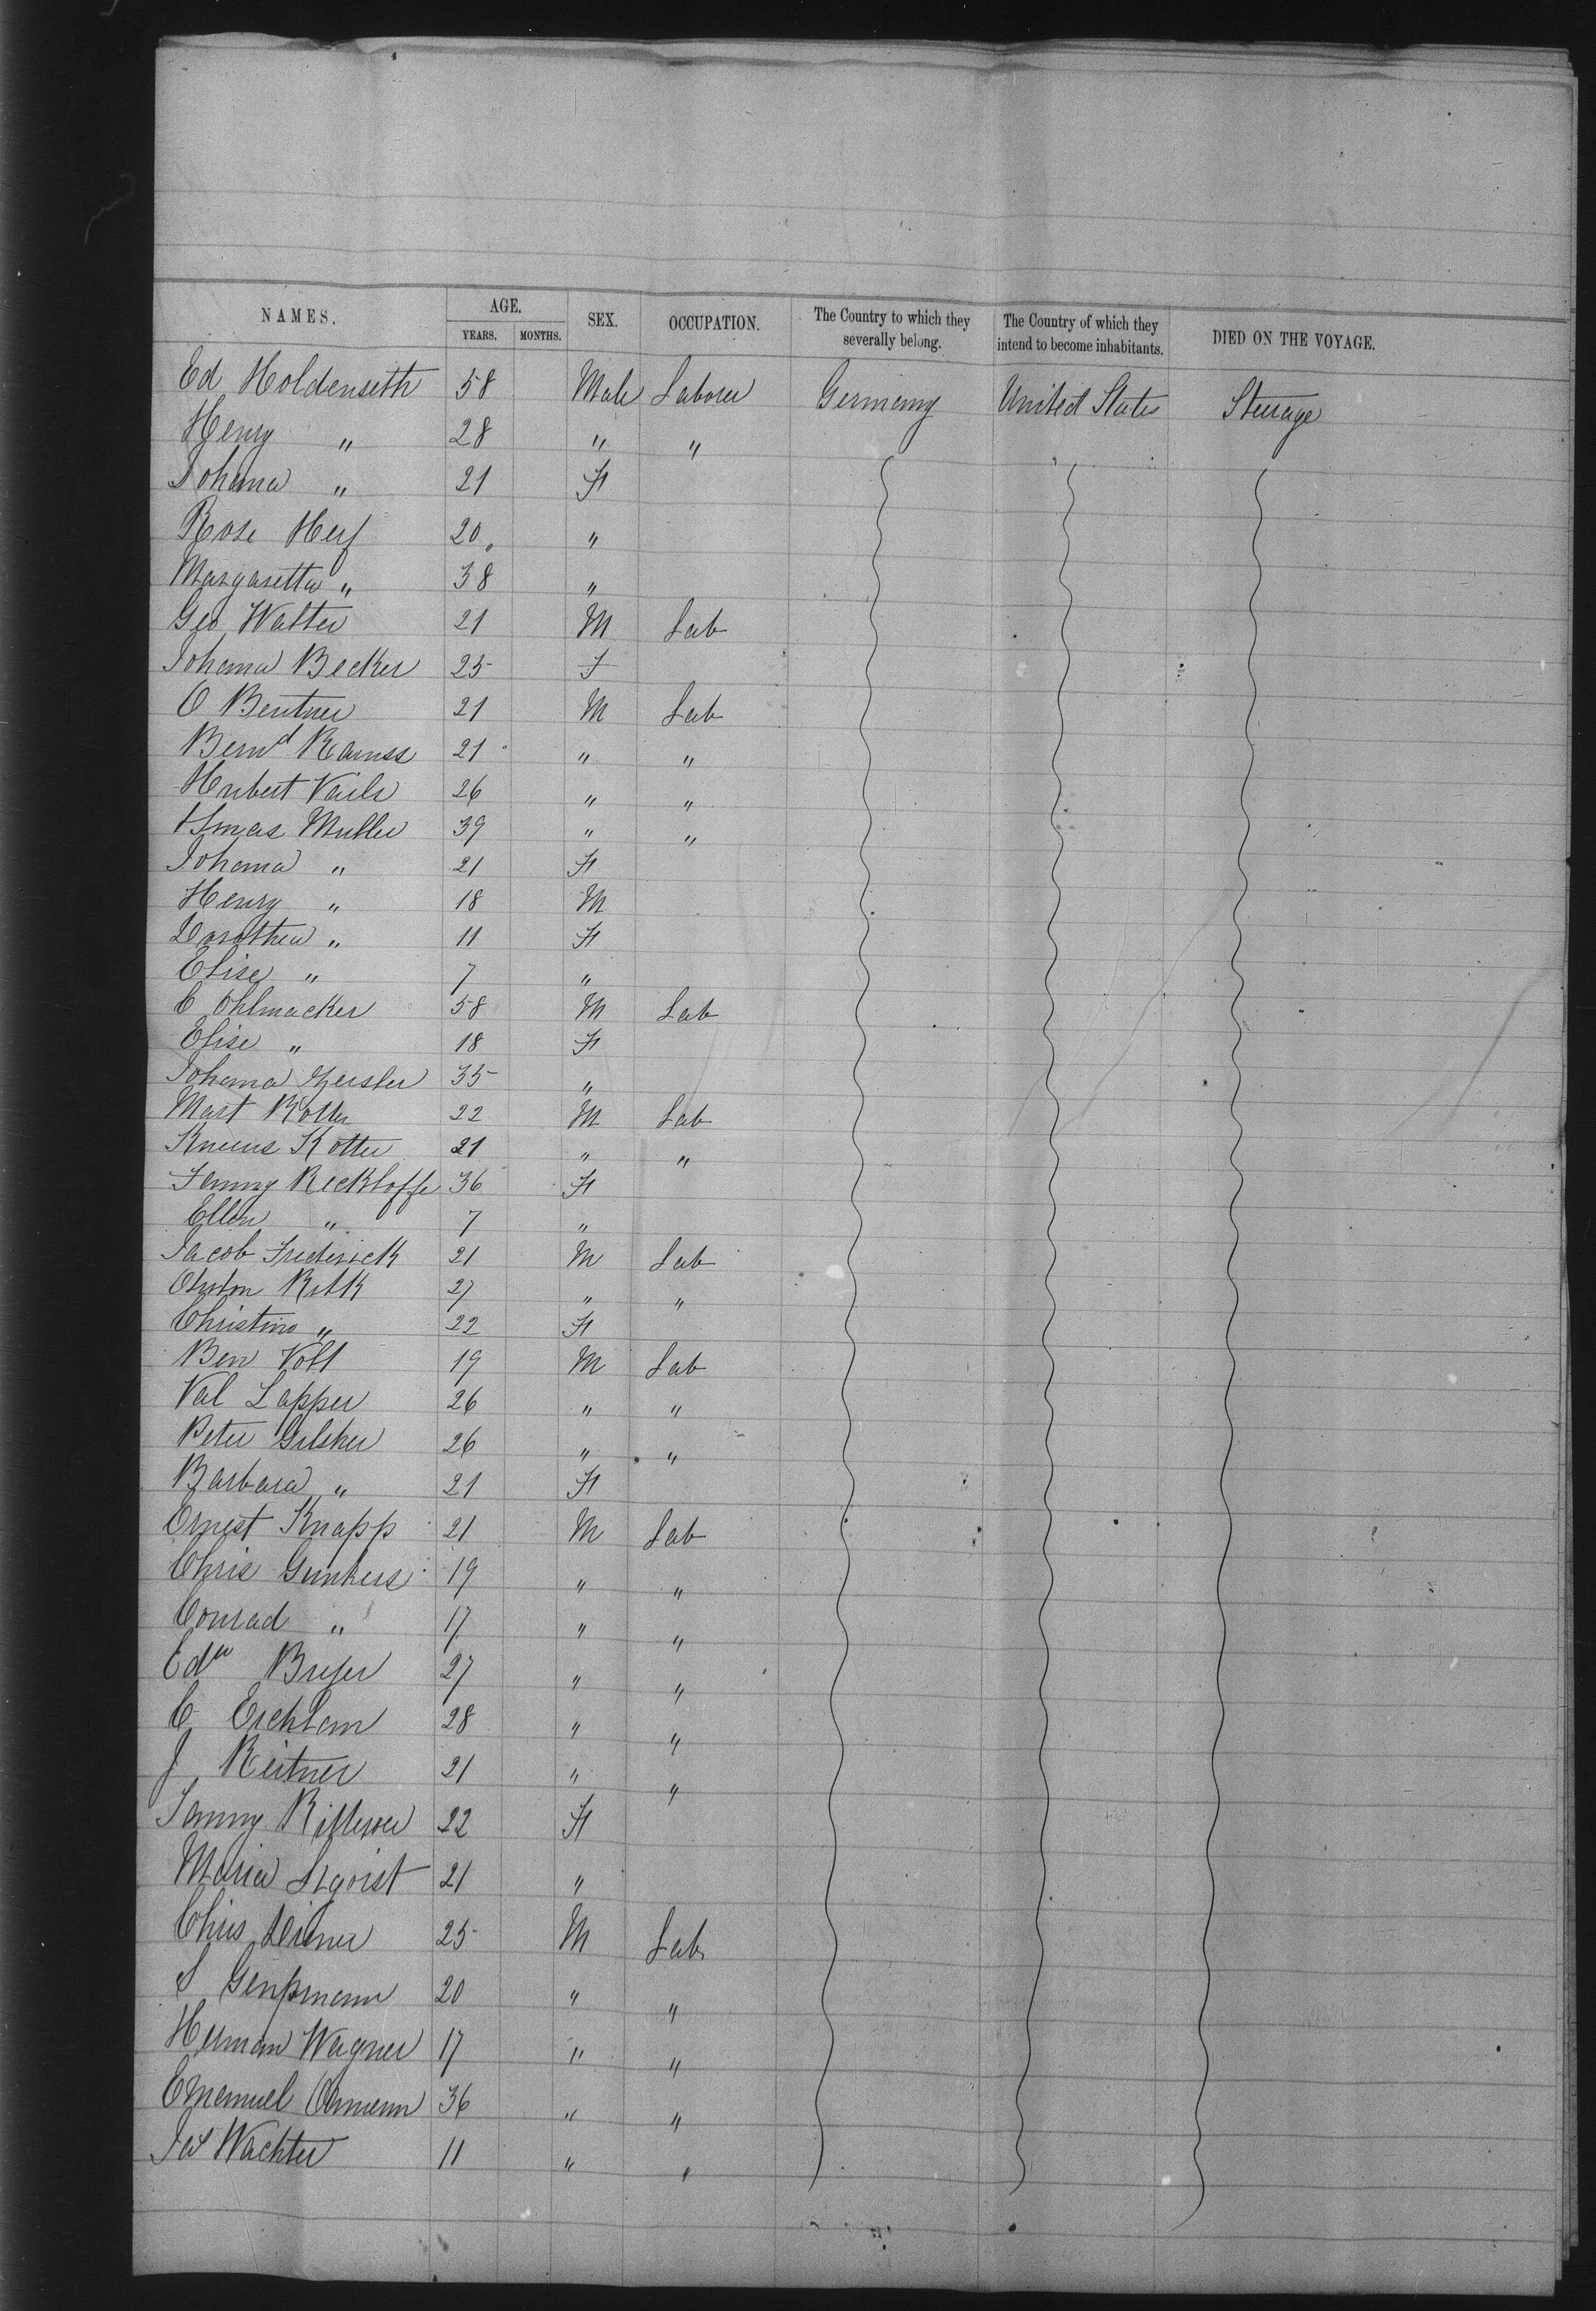 NAMES. AGE. SEX. OCCUPATION. The Country to which they severally belong. The Country of which they intend to become inhabitants. DIED ON THE VOYAGE.
YEARS. MONTHS.
Ed Holdenseth 58 Male Laborer Germany United States Steerage
Henry " 28 " "
Johana " 21 F
Rose Hey 20 "
Margaretta " 38 "
Geo Walter 21 M Lab
Johana Becker 25 F
O Bentner 21 M Lab
Bernd Ramss 21 " "
Hubert Vaile 26 " "
Muller 39 " "
Johana " 21 F
Henry " 18 M
Dorothea " 11 F
Elise " 7 "
C Ohlmacker 58 M Lab
Elise " 18 F
Johana Geisler 35 "
Mart Kotter 22 M Lab
Kotter 21 " "
Fanny Reckloffe 36 F
Ellen " 7 "
Jacob Frederick 21 M Lab
27 " "
Christine " 22 F
Ben Voll 19 M Lab
Val Lapper 26 " "
Peter Gilsher 26 " "
Barbara " 21 F
Ernest Knapp 21 M Lab
Chris Gunkers 19 " "
Conrad " 17 " "
Edw Breyer 27 " "
C Erehlam 28 " "
J Reitner 21 " "
Fanny 22 F
Maria 21 "
Chris 25 M Lab
S 20 " "
Herman Wagner 17 " "
Emanuel 36 " "
Wachter 11 " "